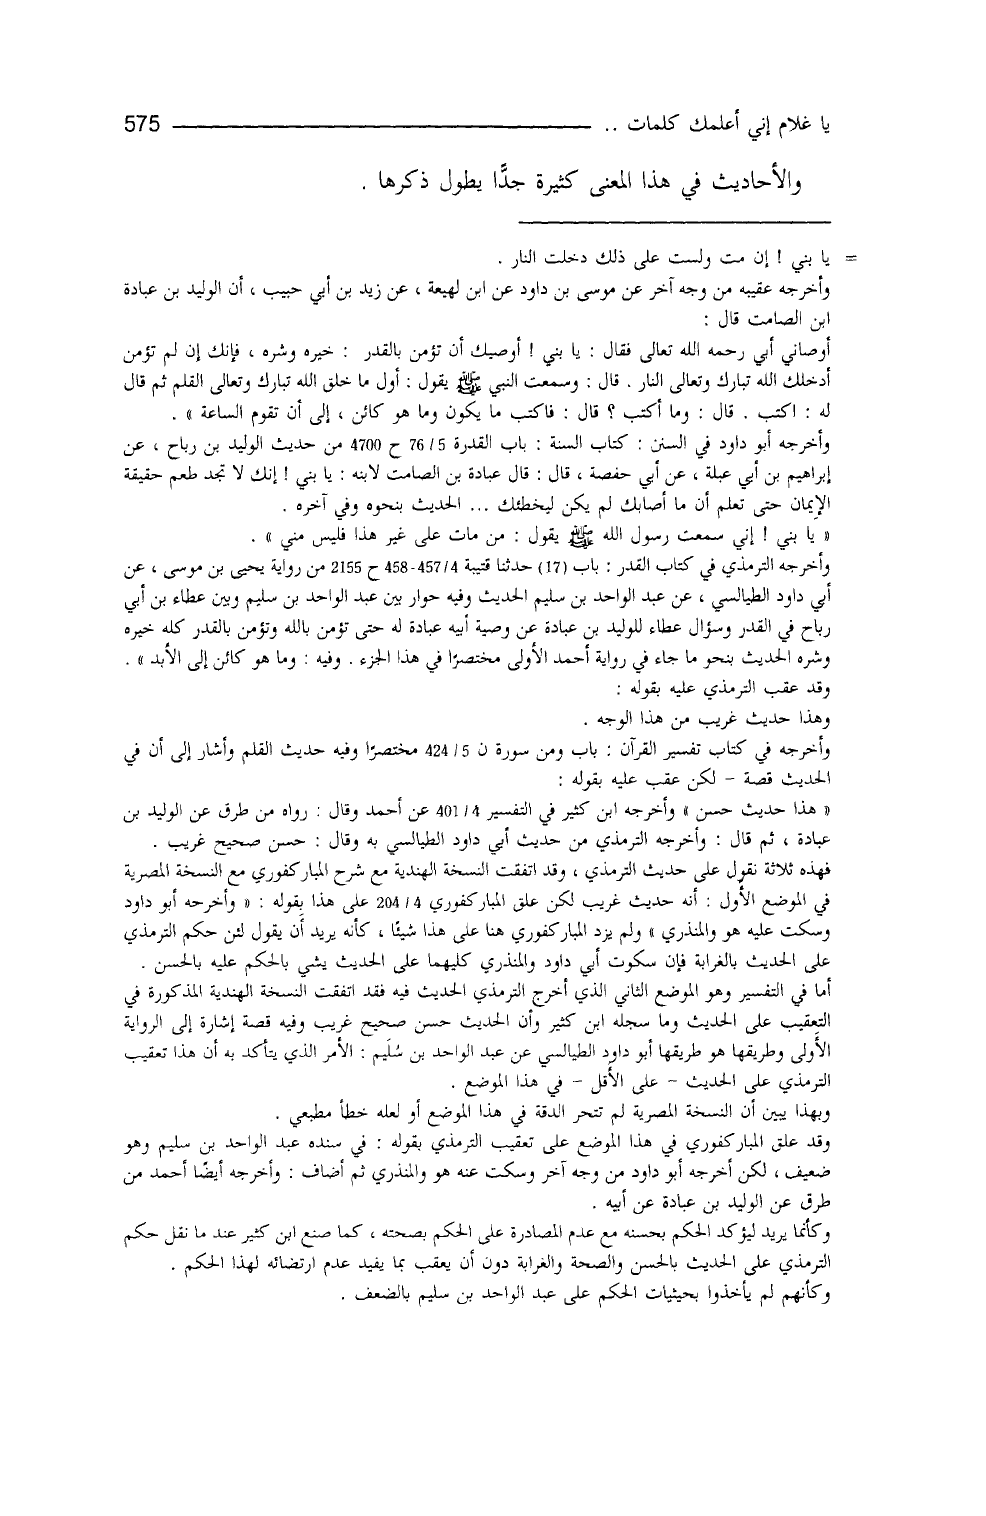 يا غلام إني أعلمك كلمات .. 575
والأحاديث في هذا المعنى كثيرة جدًّا يطول ذكرها .
= يا بني ! إن مت ولست على ذلك دخلت النار .
وأخرجه عقيبه من وجه آخر عن موسى بن داود عن ابن لهيعة ، عن زيد بن أبي حبيب ، أن الوليد بن عبادة
ابن الصامت قال :
أوصاني أبي رحمه الله تعالى فقال : يا بني ! أوصيك أن تؤمن بالقدر : خيره وشره ، فإنك إن لم تؤمن
أدخلك الله تبارك وتعالى النار . قال : وسمعت النبي ﷺ يقول : أول ما خلق الله تبارك وتعالى القلم ثم قال
له : اكتب . قال : وما أكتب ؟ قال : فاكتب ما يكون وما هو كائن ، إلى أن تقوم الساعة » .
وأخرجه أبو داود في السنن : كتاب السنة : باب القدرة 5/ 76 ح 4700 من حديث الوليد بن رباح ، عن
إبراهيم بن أبي عبلة ، عن أبي حفصة ، قال : قال عبادة بن الصامت لابنه : يا بني ! إنك لا تجد طعم حقيقة
الإيمان حتى تعلم أن ما أصابك لم يكن ليخطئك ... الحديث بنحوه وفي آخره .
« يا بني ! إني سمعت رسول الله ﷺ يقول : من مات على غير هذا فليس مني » .
وأخرجه الترمذي في كتاب القدر : باب (17) حدثنا قتيبة 4/457-458 ح 2155 من رواية يحيى بن موسى ، عن
أبي داود الطيالسي ، عن عبد الواحد بن سليم الحديث وفيه حوار بين عبد الواحد بن سليم وبين عطاء بن أبي
رباح في القدر وسؤال عطاء للوليد بن عبادة عن وصية أبيه عبادة له حتى تؤمن بالله وتؤمن بالقدر كله خيره
وشره الحديث بنحو ما جاء في رواية أحمد الأولى مختصرًا في هذا الجزء . وفيه : وما هو كائن إلى الأبد » .
وقد عقب الترمذي عليه بقوله :
وهذا حديث غريب من هذا الوجه .
وأخرجه في كتاب تفسير القرآن : باب ومن سورة ن 5/ 424 مختصرًا وفيه حديث القلم وأشار إلى أن في
الحديث قصة – لكن عقب عليه بقوله :
« هذا حديث حسن » وأخرجه ابن كثير في التفسير 4/ 401 عن أحمد وقال : رواه من طرق عن الوليد بن
عبادة ، ثم قال : وأخرجه الترمذي من حديث أبي داود الطيالسي به وقال : حسن صحيح غريب .
فهذه ثلاثة نقول على حديث الترمذي ، وقد اتفقت النسخة الهندية مع شرح المباركفوري مع النسخة المصرية
في الموضع الأول : أنه حديث غريب لكن علق المباركفوري 4/ 204 على هذا بقوله : « وأخرجه أبو داود
وسكت عليه هو والمنذري » ولم يزد المباركفوري هنا على هذا شيئًا ، كأنه يريد أن يقول لئن حكم الترمذي
على الحديث بالغرابة فإن سكوت أبي داود والمنذري كليهما على الحديث يشي بالحكم عليه بالحسن .
أما في التفسير وهو الموضع الثاني الذي أخرج الترمذي الحديث فيه فقد اتفقت النسخة الهندية المذكورة في
التعقيب على الحديث وما سجله ابن كثير وأن الحديث حسن صحيح غريب وفيه قصة إشارة إلى الرواية
الأولى وطريقها هو طريقها أبو داود الطيالسي عن عبد الواحد بن سُلَيم : الأمر الذي يتأكد به أن هذا تعقيب
الترمذي على الحديث – على الأقل – في هذا الموضع .
وبهذا يبين أن النسخة المصرية لم تتحر الدقة في هذا الموضع أو لعله خطأ مطبعي .
وقد علق المباركفوري في هذا الموضع على تعقيب الترمذي بقوله : في سنده عبد الواحد بن سليم وهو
ضعيف ، لكن أخرجه أبو داود من وجه آخر وسكت عنه هو والمنذري ثم أضاف : وأخرجه أيضًا أحمد من
طرق عن الوليد بن عبادة عن أبيه .
وكأنما يريد ليؤكد الحكم بحسنه مع عدم المصادرة على الحكم بصحته ، كما صنع ابن كثير عند ما نقل حكم
الترمذي على الحديث بالحسن والصحة والغرابة دون أن يعقب بما يفيد عدم ارتضائه لهذا الحكم .
وكأنهم لم يأخذوا بحيثيات الحكم على عبد الواحد بن سليم بالضعف .